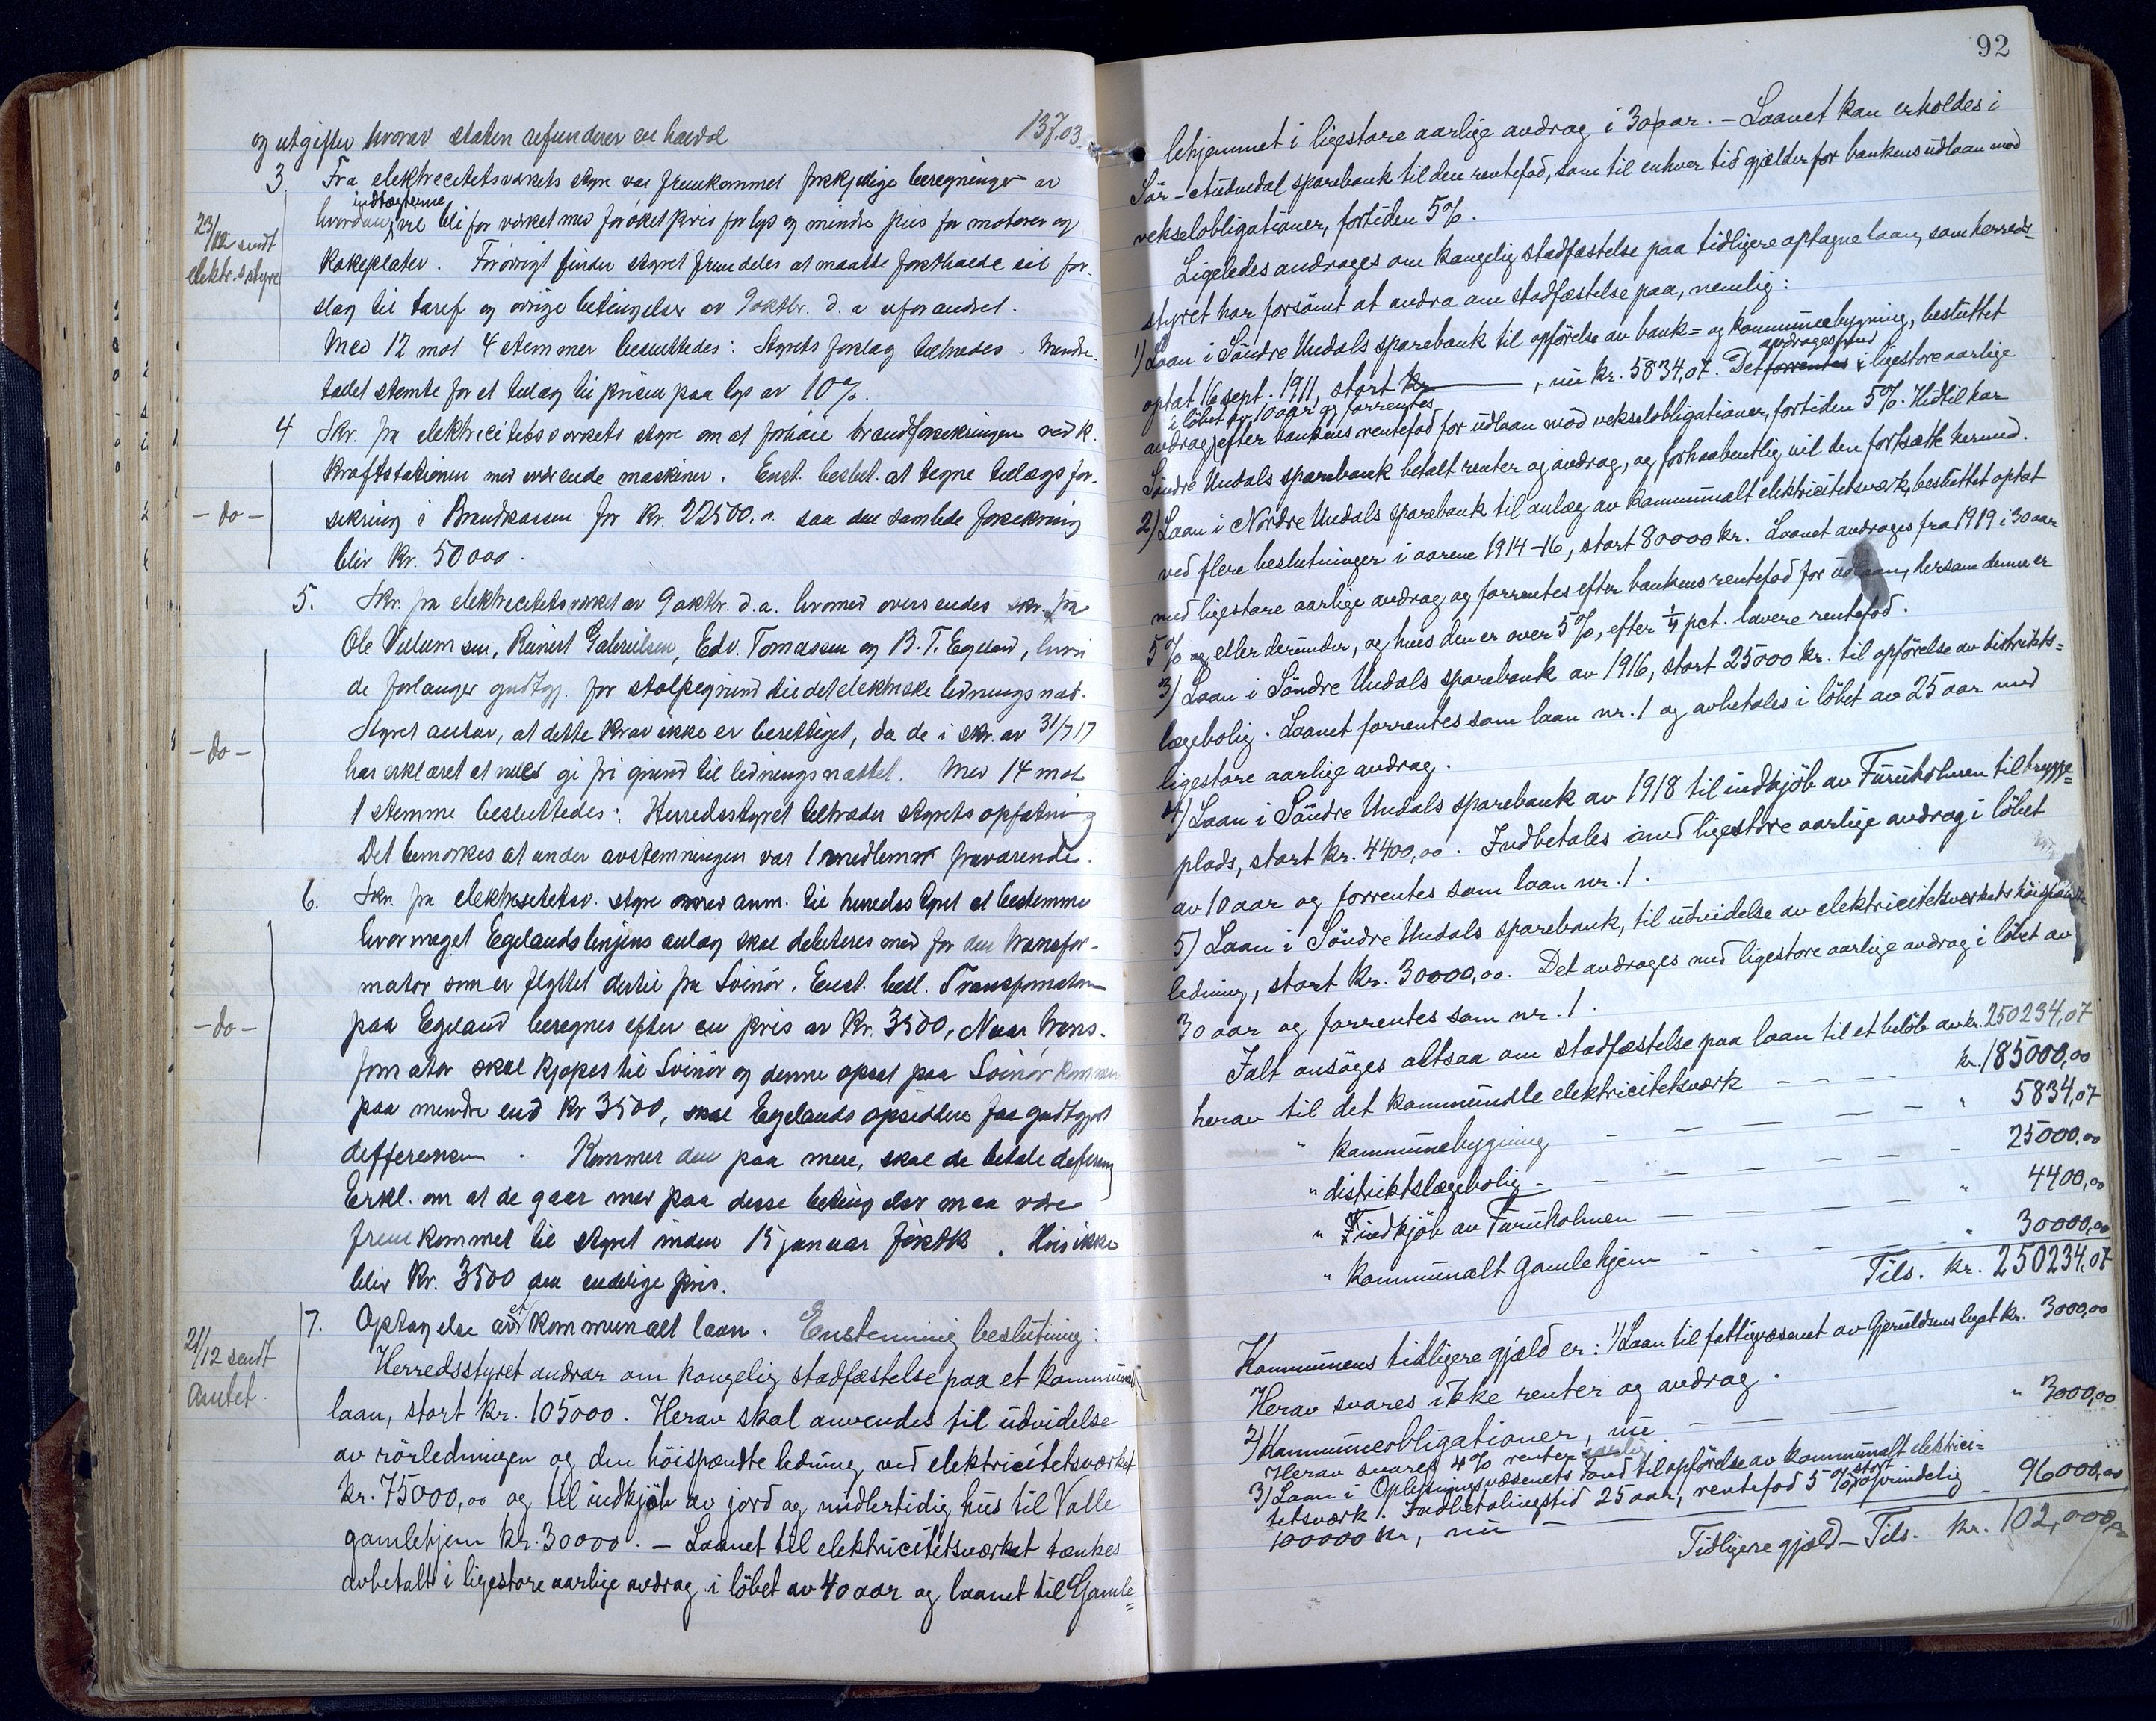 og utgifter hvorav staten refunderer en halvdel 137.03
3. Fra elektrecitetsværkets styre var fremkommet forskjellige beregninger av
indtægterne
23/12 sendt
elektr.s styre
hvordan vil bli for verket med forøket pris for lys og mindre pris for motorer og
kokeplater. Forøvrigt finder styret fremdeles at maatte fastholde sit for-
slag til tarif og øvrige betingelser av 9 oktbr. d. a uforandret.
Med 12 mot 4 stemmer besluttedes: Styrets forslag tiltrædes. Mindre-
tallet stemte for et tillæg til prisen paa lys av 10%.
4 Skr. fra elektricitetsværkets styre om at forhøie brandforsikringen ved k.
kraftstationen med værende maskiner. Enst. beslut. at tegne tillægsfor-
-do- sikring i Brandkassen for Kr. 22500.- saa den samlede forsikring
blir Kr. 50000.
5. Skr. fra elektrecitetsverket av 9 oktbr. d.a. hvormed oversendes skr. fra
Ole Villumsen, Reinert Gabrielsen, Edv. Tomassen og B. T. Egeland, hvori
de forlanger godtgj. for stolpegrund til det elektriske ledningsnæt.
-do- Styret anser, at dette krav ikke er berettiget, da de i skr. av 31/7 17
har erklæret at ville gi fri grund til ledningsnættet. Med 14 mot
1 stemme besluttedes: Herredsstyret tiltræder styrets opfatning
Det bemerkes at under avstemningen var 1 medlem fraværende.
6. Skr. fra elektrisitetsv. styre med anm. til herredsstyret at bestemme
hvor meget Egelandslinjens anlæg skal debiteres med for den transfor-
mator som er flyttet dertil fra Svinør. Enst. besl. Transformatoren
-do- paa Egeland beregnes efter en pris av Kr. 3500, Naar trans-
formator skal kjøpes til Svinør og denne opsat paa Svinør kommer
paa mindre end Kr 3500, skal Egelands opsiddere faa godtgjort
differensen. Kommer den paa mere, skal de betale differens
Erkl. om at de gaar med paa disse betingelser maa være
fremkommet til styret inden 15 januar førstk. Hvis ikke
blir Kr. 3500 den endelige pris.
7. Optagelse av et kommunalt laan. Enstemmig beslutning:
21/12 sendt
Amtet.
Herredsstyret andrar om kongelig stadfæstelse paa et kommunalt
laan, stort kr. 105000. Herav skal anvendes til utvidelse
av rörledningen og den höispændte ledning ved elektricitetsværket
kr. 75000,00 og til indkjöb av jord og midlertidig hus til Valle
gamlehjem kr. 30000. - Laanet til elektricitetsværket tænkes
avbetalt i ligestore aarlige avdrag i löbet av 40 aar og laanet til Gamle=
92
lehjemmet i ligestore aarlige avdrag i 30 aar. - Laanet kan erholdes i
Sör-Audnedal sparebank til den rentefod, som til enhver tid gjælder for bankens udlaan mod
vekselobligationer, fortiden 5%.
Ligeledes andrages om kongelig stadfæstelse paa tidligere optagne laan, som herreds-
styret har forsömt at andra om stadfæstelse paa, nemlig:
1) Laan i Söndre Undals sparebank til opförelse av bank= og kommunebygning, besluttet
avdrages med
optat 16 sept. 1911, stort kr , nu kr. 5834,07. Det forrentes i ligestore aarlige
i löbet av 10 aar og forrentes
avdrag efter bankens rentefod for udlaan mod vekselobligationer, fortiden 5%. Hidtil har
Söndre Undals sparebank betalt renter og avdrag, og forhaabentlig vil den fortsætte hermed.
2) Laan i Nordre Undals sparebank til anlæg av kommunalt elektricitetsværk, besluttet optat
ved flere beslutninger i aarene 1914-16, stort 80000 kr. Laanet avdrages fra 1919 i 30 aar
med ligestore aarlige avdrag og forrentes efter bankens rentefod for udlaan, dersom denne er
5% og eller derunder, og hvis den er over 5%, efter 1/4 pct. lavere rentefod.
3) Laan i Söndre Undals sparebank av 1916, stort 25000 kr. til opförelse av distrikts=
lægebolig. Laanet forrentes som laan nr. 1 og avbetales i löbet av 25 aar med
ligestore aarlige avdrag.
4) Laan i Söndre Undals sparebank av 1918 til indkjöb av Furuholmen til brygge=
plads, stort kr. 4400,00. Indbetales med ligestore aarlige avdrag i löbet
av 10 aar og forrentes som laan nr. 1.
5) Laan i Söndre Undals sparebank, til utvidelse av elektricitetsværkets höispændte
ledning, stort kr. 30000,00. Det avdrages med ligestore aarlige avdrag i löbet av
30 aar og forrentes som nr. 1.
Ialt ansöges altsaa om stadfæstelse paa laan til et belöb av kr. 250234,07
herav til det kommunale elektricitetsværk - - - - kr. 185000,00
" kommunebygning - - - - " 5834,07
" distriktslægebolig - - - - 25000,00
" Indkjöb av Furuholmen - - - - " 4400,00
" kommunalt gamlehjem - - - - " 30000,00
Tils. kr. 250234,07
Kommunens tidligere gjæld er: 1) Laan til fattigvæsenet av Gjeruldsens legat kr. 3000,00
Herav svares ikke renter og avdrag.
2) Kommuneobligationer, nu - - - " 3000,00
Herav svares 4% renter aarlig
3) Laan i Oplysningsvæsenets fond til opförelse av kommunalt elektrici=
tetsværk. Indbetalingstid 25 aar, rentefod 5%, stort oprindelig
100000 kr, nu - - - 96000,00
Tidligere gjæld - Tils. kr. 102,000,00